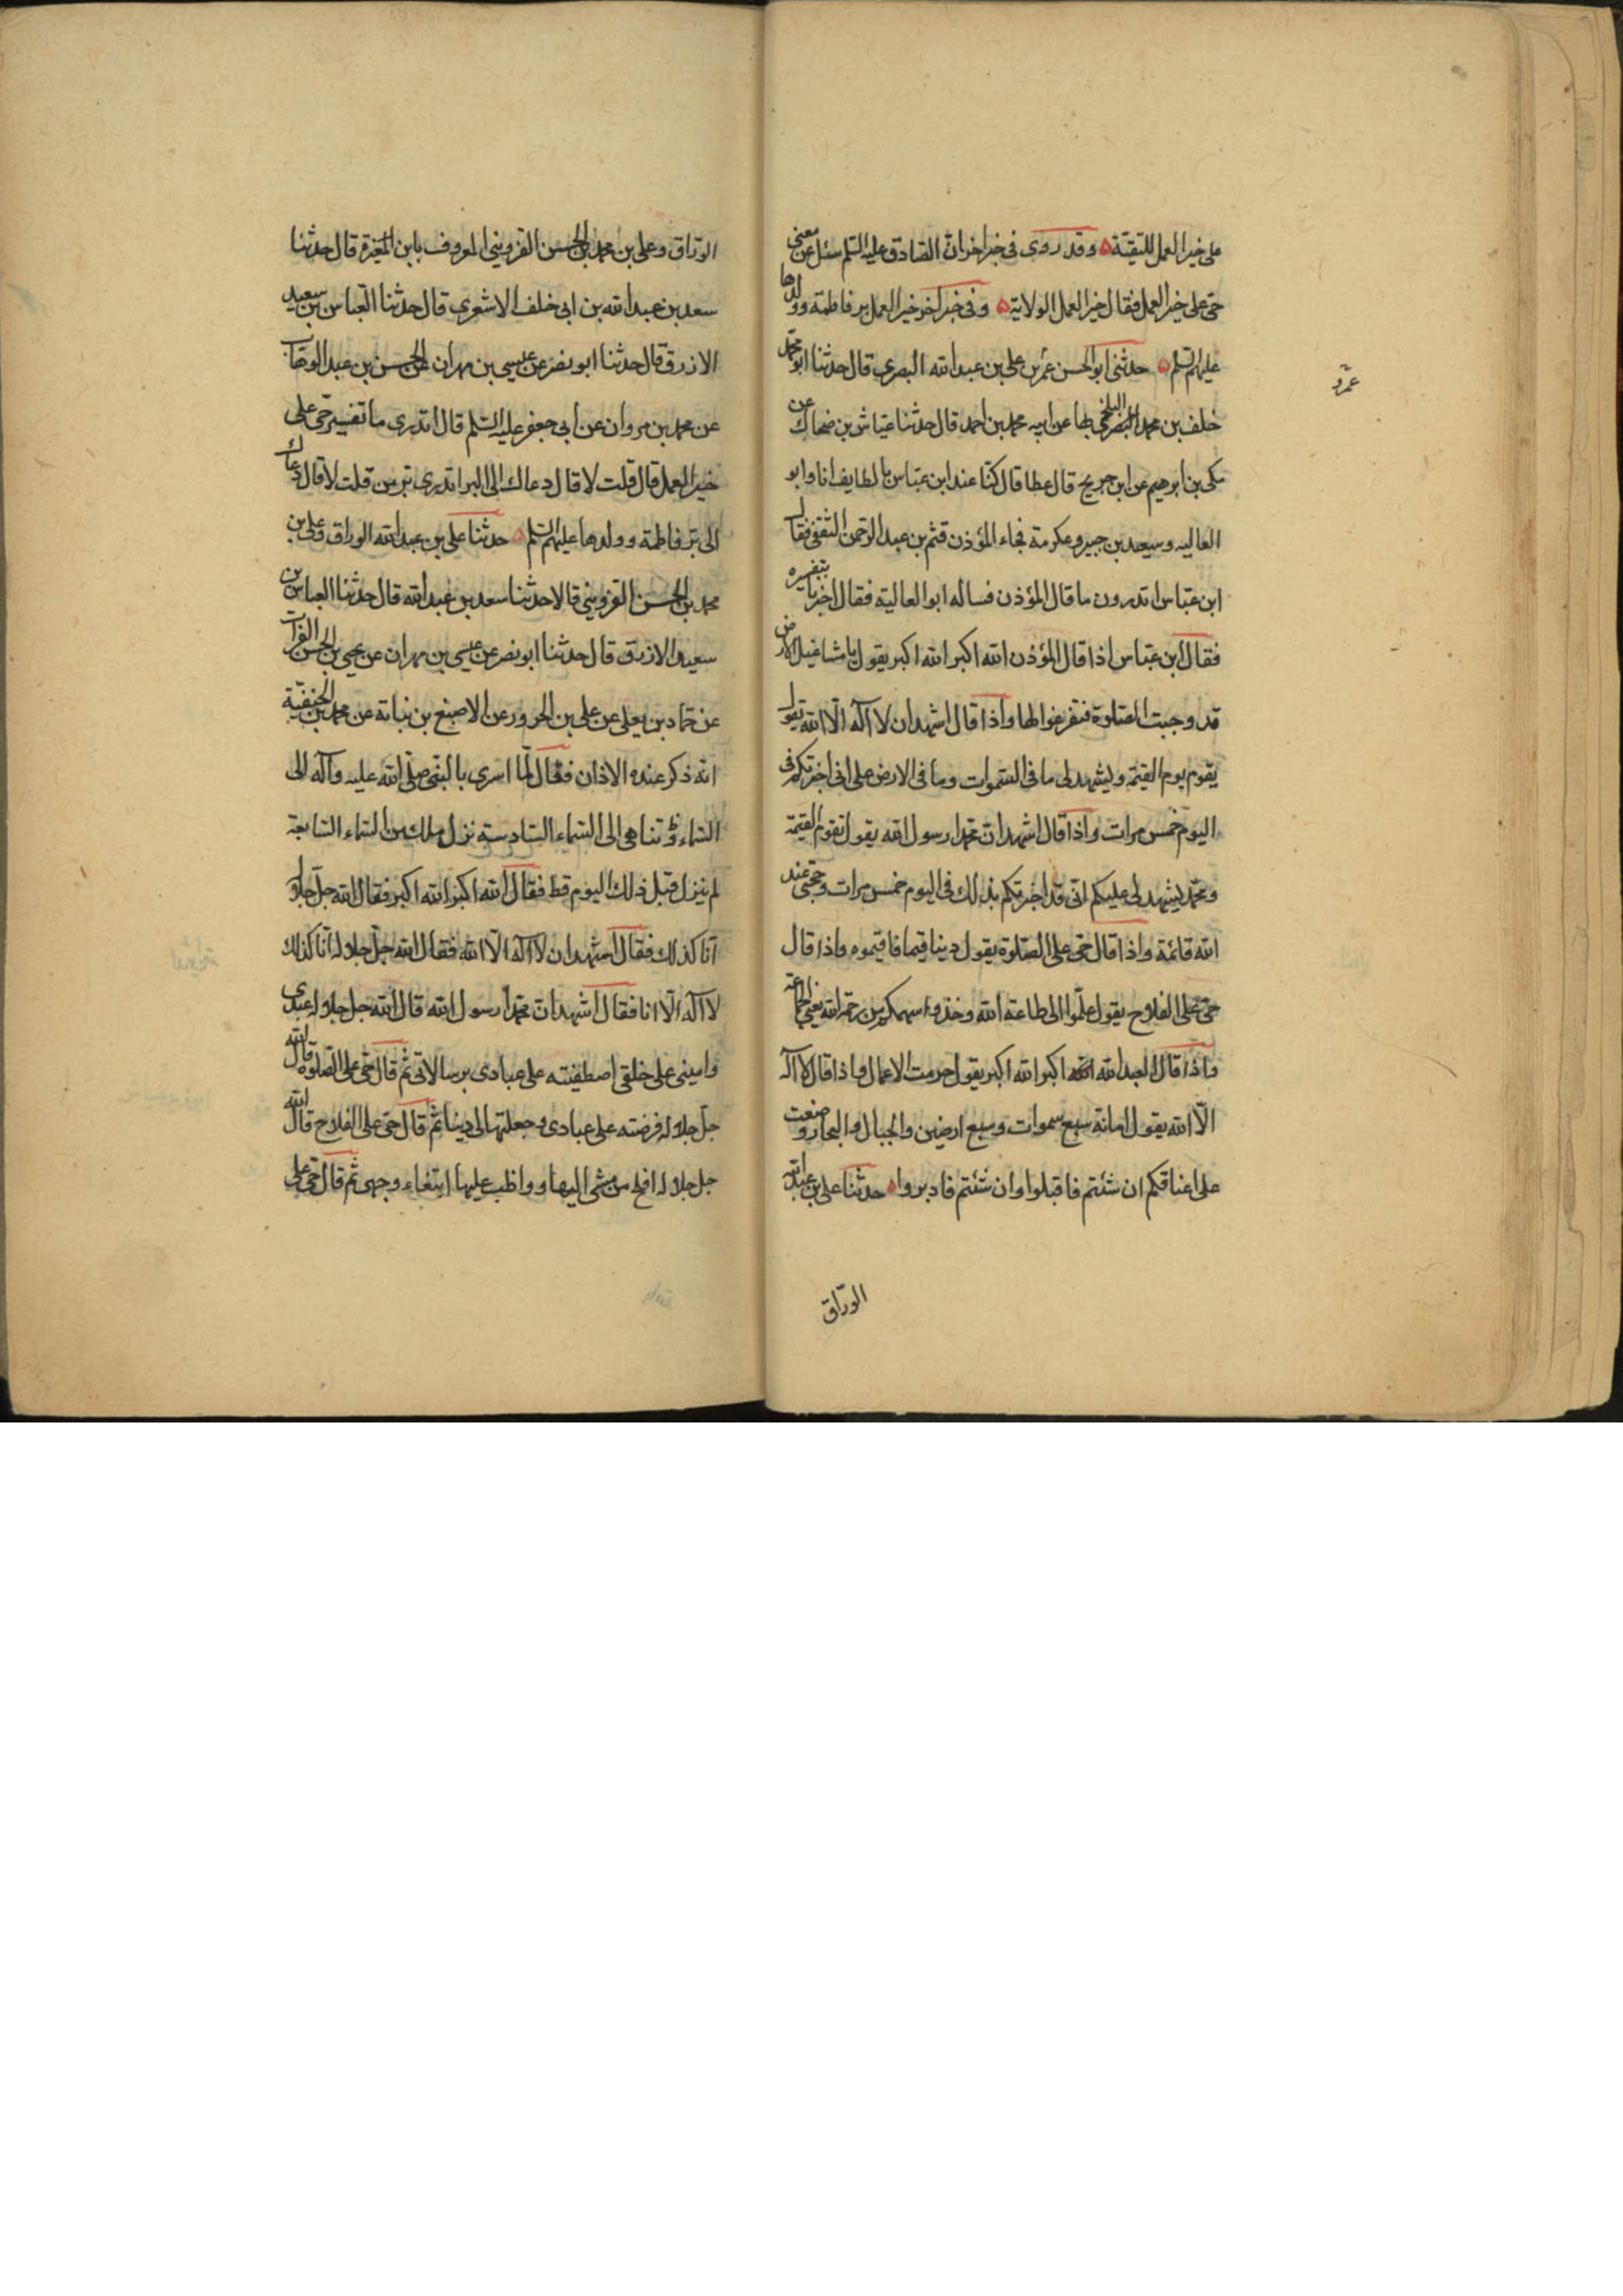 على خير العمل للتقية وقد روى في خبر اخر ان الصادق عليه السلم سئل عن معنى
حى على خير العمل فقال خير العمل الولاية وفي خبر اخر خير العمل بر فاطمة وولدها
عليهم السلم حدثنى ابو الحسن عمر بن على بن عبد الله البصرى قال حدثنا ابو محمد
عمرو
خلف بن محمد البلخى بها عن ابيه محمد بن احمد قال حدثنا عياش بن ضحاك عن
مكى بن ابرهيم عن ابن جريح قال عطا قال كنا عند ابن عباس بالطايف انا وابو
العاليه وسيعد بن جبير وعكرمة فجاء المؤذن قثم بن عبد الرحمن الثقفى فقال
ابن عباس اتدرون ما قال المؤذن فساله ابو العالية فقال اخبرنا بتفسيره
فقال ابن عباس اذا قال المؤذن الله اكبر الله اكبر يقول يا مشاغيل الارض
قد وجبت الصلوة فتفرغوا لها واذا قال اشهد ان لا اله الا الله يقول
يقوم يوم القيمة وليشهد لى ما فى السموات وما فى الارض على انى اخبرتكم فى
اليوم خمس مرات واذا قال اشهد ان محمدا رسول الله يقول تقوم القيمة
ومحمد يشهد لى عليكم انى قد اخبرتكم بذلك فى اليوم خمس مرات وحجتى عند
الله قائمة واذا قال حى على الصلوة يقول دينا قيما فاقيموه واذا قال
حى على الفلاح يقول هلموا الى طاعة الله وخذوا سهمكم من رحمة الله يعنى الجماعة
واذا قال العبد الله اكبر الله اكبر يقول حرمت الاعمال واذا قال لا اله
الا الله يقول امانة سبع سموات وسبع ارضين والجبال والبحار وضعت
على اعناقكم ان شئتم فاقبلوا وان شئتم فادبروا حدثنا على بن عبد الله
الوراق
الوراق وعلى بن محمد بن الحسن القزوينى المعروف بابن المغيرة قال حدثنا
سعد بن عبد الله بن ابى خلف الاشعرى قال حدثنا العباس بن سعيد
الازرق قال حدثنا ابو نصر عن عيسى بن مهران عن الحسن بن عبد الوهاب
عن محمد بن مروان عن ابى جعفر عليه السلم قال اتدرى ما تفسير حى على
خير العمل قال قلت لا قال دعاك الى البر اتدرى بر من قلت لا قال دعاك
الى بر فاطمة وولدها عليهم السلم حدثنا على بن عبد الله الوراق وعلى بن
محمد بن الحسن القزوينى قالا حدثنا سعد بن عبد الله قال حدثنا العباس بن
سعيد الازرق قال حدثنا ابو نصر عن عيسى بن مهران عن يحيى بن الحسن الفرات
عن حماد بن يعلى عن على بن الحزور عن الاصبغ بن نباته عن محمد بن الحنفية
انه ذكر عنده الاذان فقال لما اسرى بالنبى صلى الله عليه وآله الى
السماء وتناهى الى السماء السادسة نزل ملك من السماء السابعة
لم ينزل قبل ذلك اليوم قط فقال الله اكبر الله اكبر فقال الله جل جلاله
انا كذلك فقال اشهد ان لا اله الا الله فقال الله جل جلاله انا كذلك
لا اله الا انا فقال اشهد ان محمدا رسول الله قال الله جل جلاله عبدى
وامينى على خلقى اصطفيته على عبادى برسالاتى ثم قال حى على الصلوة قال الله
جل جلاله فرضته على عبادى وجعلتها لى دينا ثم قال حى على الفلاح قال الله
جل جلاله افلح من مشى اليها وواظب عليها ابتغاء وجهى ثم قال حى على